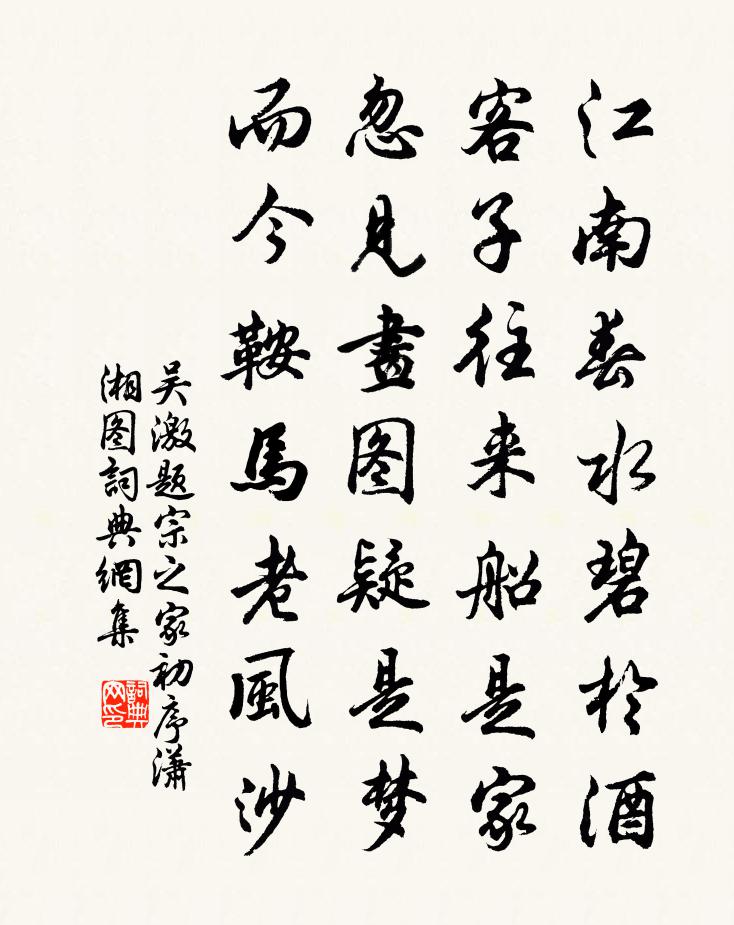 江南春水碧於酒
客子往来船是家
忽見畫图疑是梦
而今鞍馬老風沙
吴激题宗之家初序潇
湘图詞典網集
詞典
网印